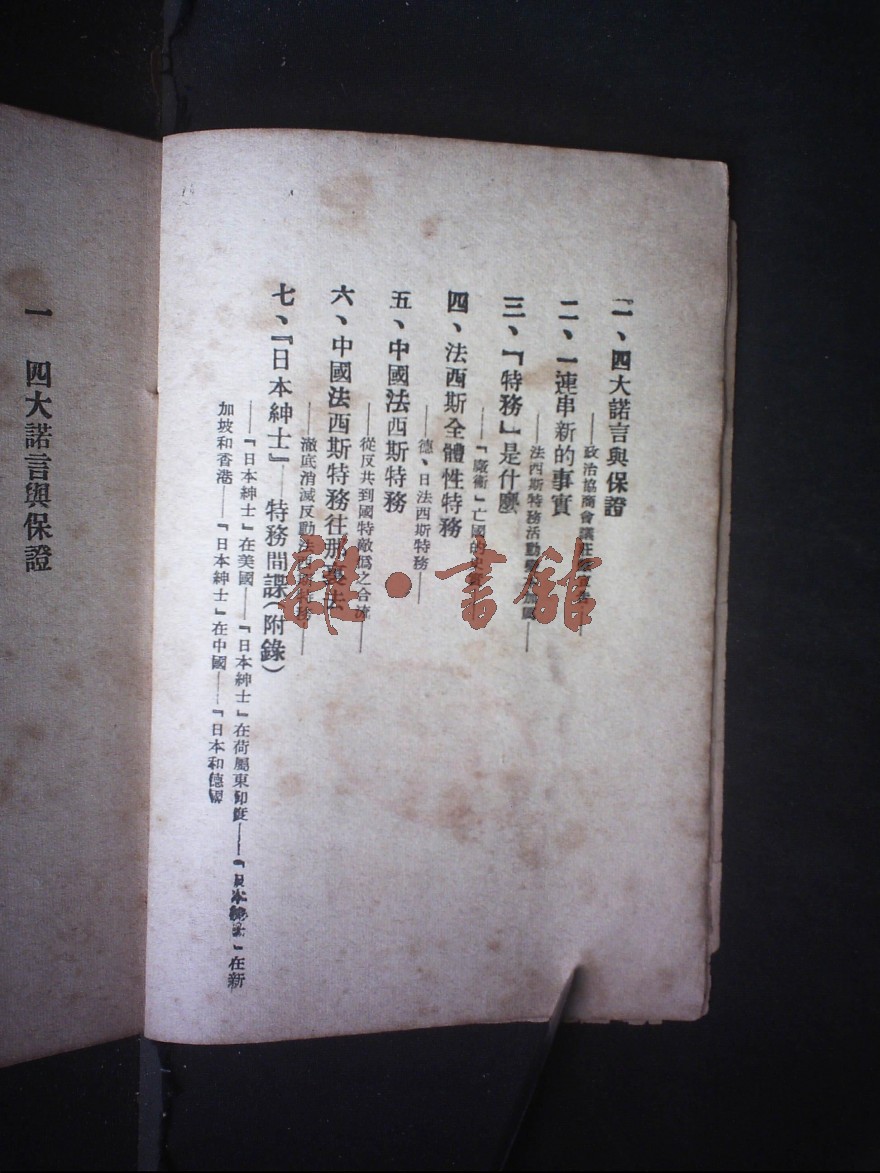 一、四大諾言與保證
——政治協商會議
二、一連串新的事實
——法西斯特務活動
三、『特務』是什麼
——『魔術』亡國的史
四、法西斯全體性特務
——德、日法西斯特務——
五、中國法西斯特務
——從反共到國特敵僞之合流——
六、中國法西斯特務往那裏去
——澈底消滅反動法西斯特務——
七、『日本紳士』——特務間諜(附錄)
——『日本紳士』在美國——『日本紳士』在荷屬東印度——『日本紳士』在新
加坡和香港——『日本紳士』在中國——『日本和德國
一 四大諾言與保證
雜·書舘